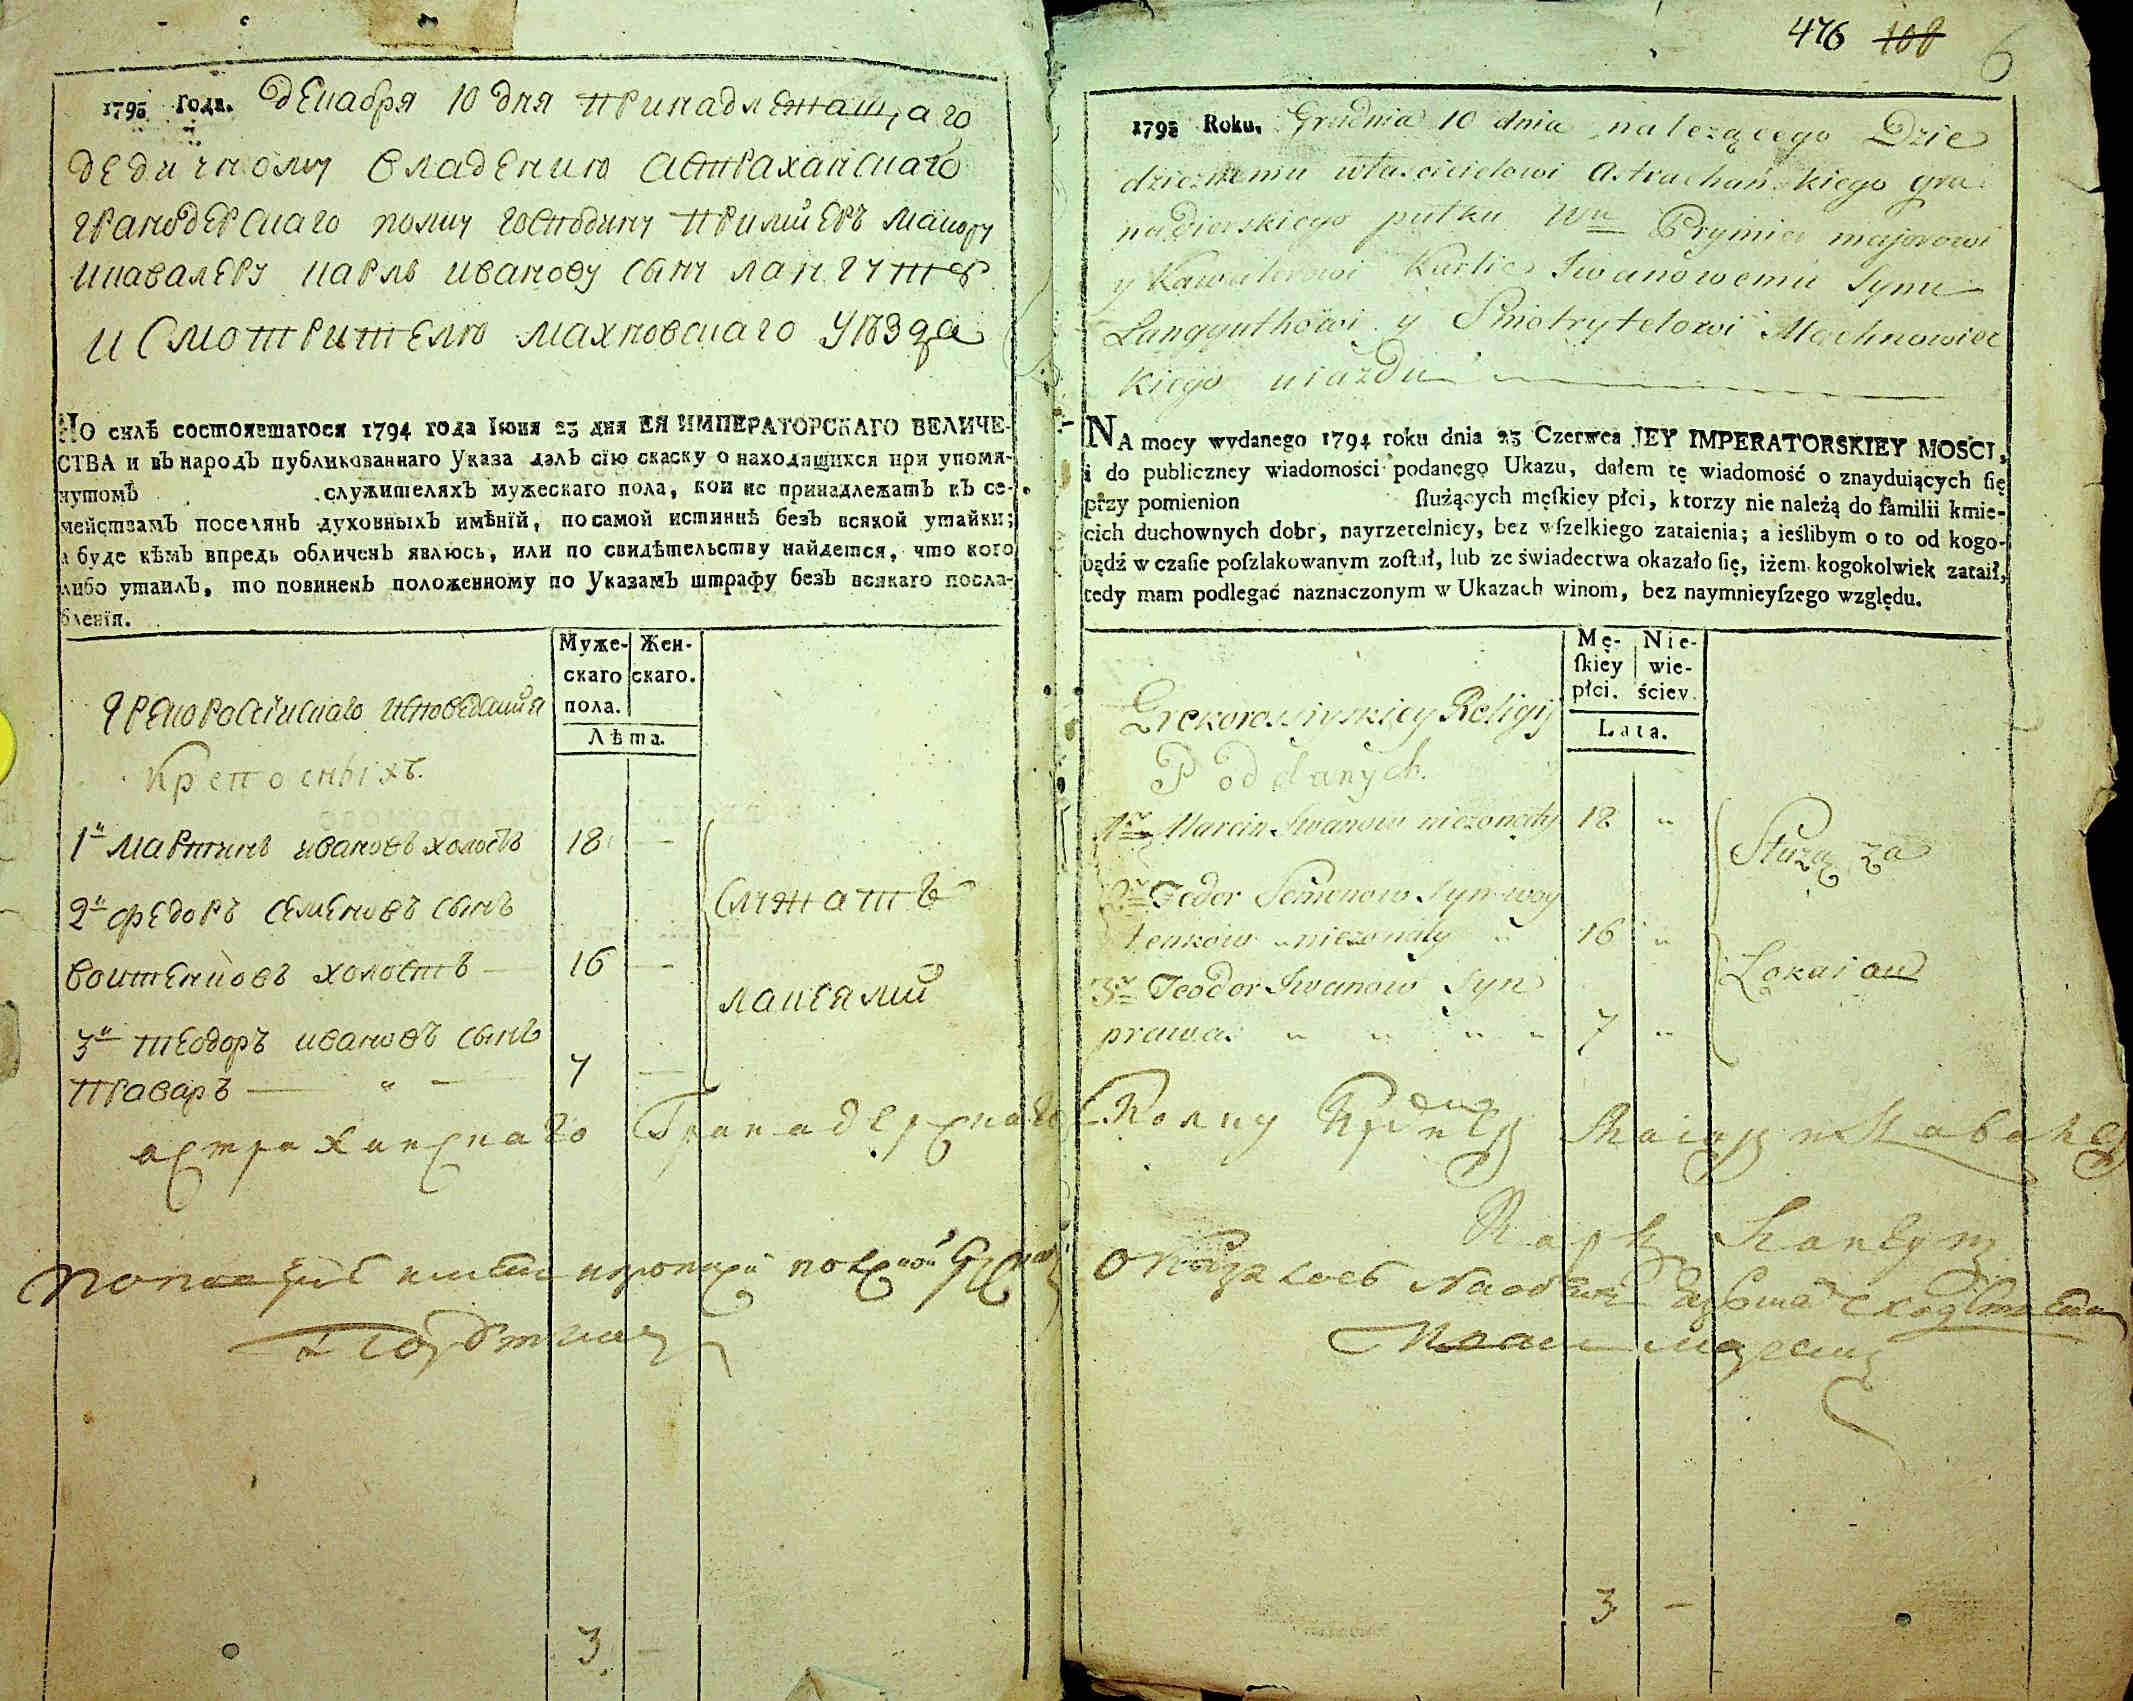 1795 Года. декабря 10 дня принадлежащаго
дедичному владению астраханскаго
гранодерскаго полку господину примиеръ маиору
икавалеру карлъ иванову сыну лангут
и смотрителю махновскаго уѣзда
По силѣ состоявшагося 1794 года Іюня 23 дня ЕЯ ИМПЕРАТОРСКАГО ВЕЛИЧЕ-
СТВА и въ народъ публикованнаго Указа далъ сїю скаску о находящихся при упомя-
нутомъ служителяхъ мужескаго пола, кои не принадлежатъ къ се-
мействамъ поселянъ духовныхъ имѣнїй, по самой истиннѣ безъ всякой утайки;
а буде кѣмъ впредь обличенъ явлюсь, или по свидѣтельству найдется, что кого
либо утаилъ, то повиненъ положенному по Указамъ штрафу безъ всякаго посла-
бленїя.
Муже-скаго пола. Жен-скаго.
Лѣта.
грекороссїискаго исповеданиѧ
Крепосныхъ.
1й мартинъ ивановъ холостъ 18 —
2й федоръ семеновъ сынъ
воитенковъ холостъ — 16 —
служатъ
3й теодоръ ивановъ сынъ
лакеями
праваръ — " — 7 —
астраханскаго Гранадерскаго
3 —
476 108
6
1795 Roku, Grudnia 10 dnia nalezącego Dzie
dzicznemu właścicielowi Astrachańskiego gra
nadierskiego pułku Wu Prymier majorowi
y Kawalerowi Karlie Iwanowemu Synu
Langguthowi y Smotrytelowi Machnowiec
kiego uiazdu
NA mocy wydanego 1794 roku dnia 23 Czerwca JEY IMPERATORSKIEY MOSCI,
i do publiczney wiadomości podanego Ukazu, dałem tę wiadomość o znayduiących ſię
przy pomienion ſłużących męſkiey płci, ktorzy nie należą do familii kmie-
cich duchownych dobr, nayrzetelniey, bez wſzelkiego zataienia; a ieślibym o to od kogo-
bądź w czaſie poſzlakowanym zoſtał, lub ze świadectwa okazało ſię, iżem kogokolwiek zataił,
tedy mam podlegać naznaczonym w Ukazach winom, bez naymnieyſzego względu.
Mę-ſkiey płci. Nie-wie-ściey.
Lata.
Grekorossiyskiey Religij
Poddanych.
1r Marcin Iwanow niezonaty 18 "
Służą za
2r Fedor Semenow Syn woy
tenkow " niezonaty " 16 "
Lokaiow
3r Teodor Iwanow Syn
prawar " " " " 7 "
Полку Маиоръ и Кавалеръ
Карлъ Лангут
3 —